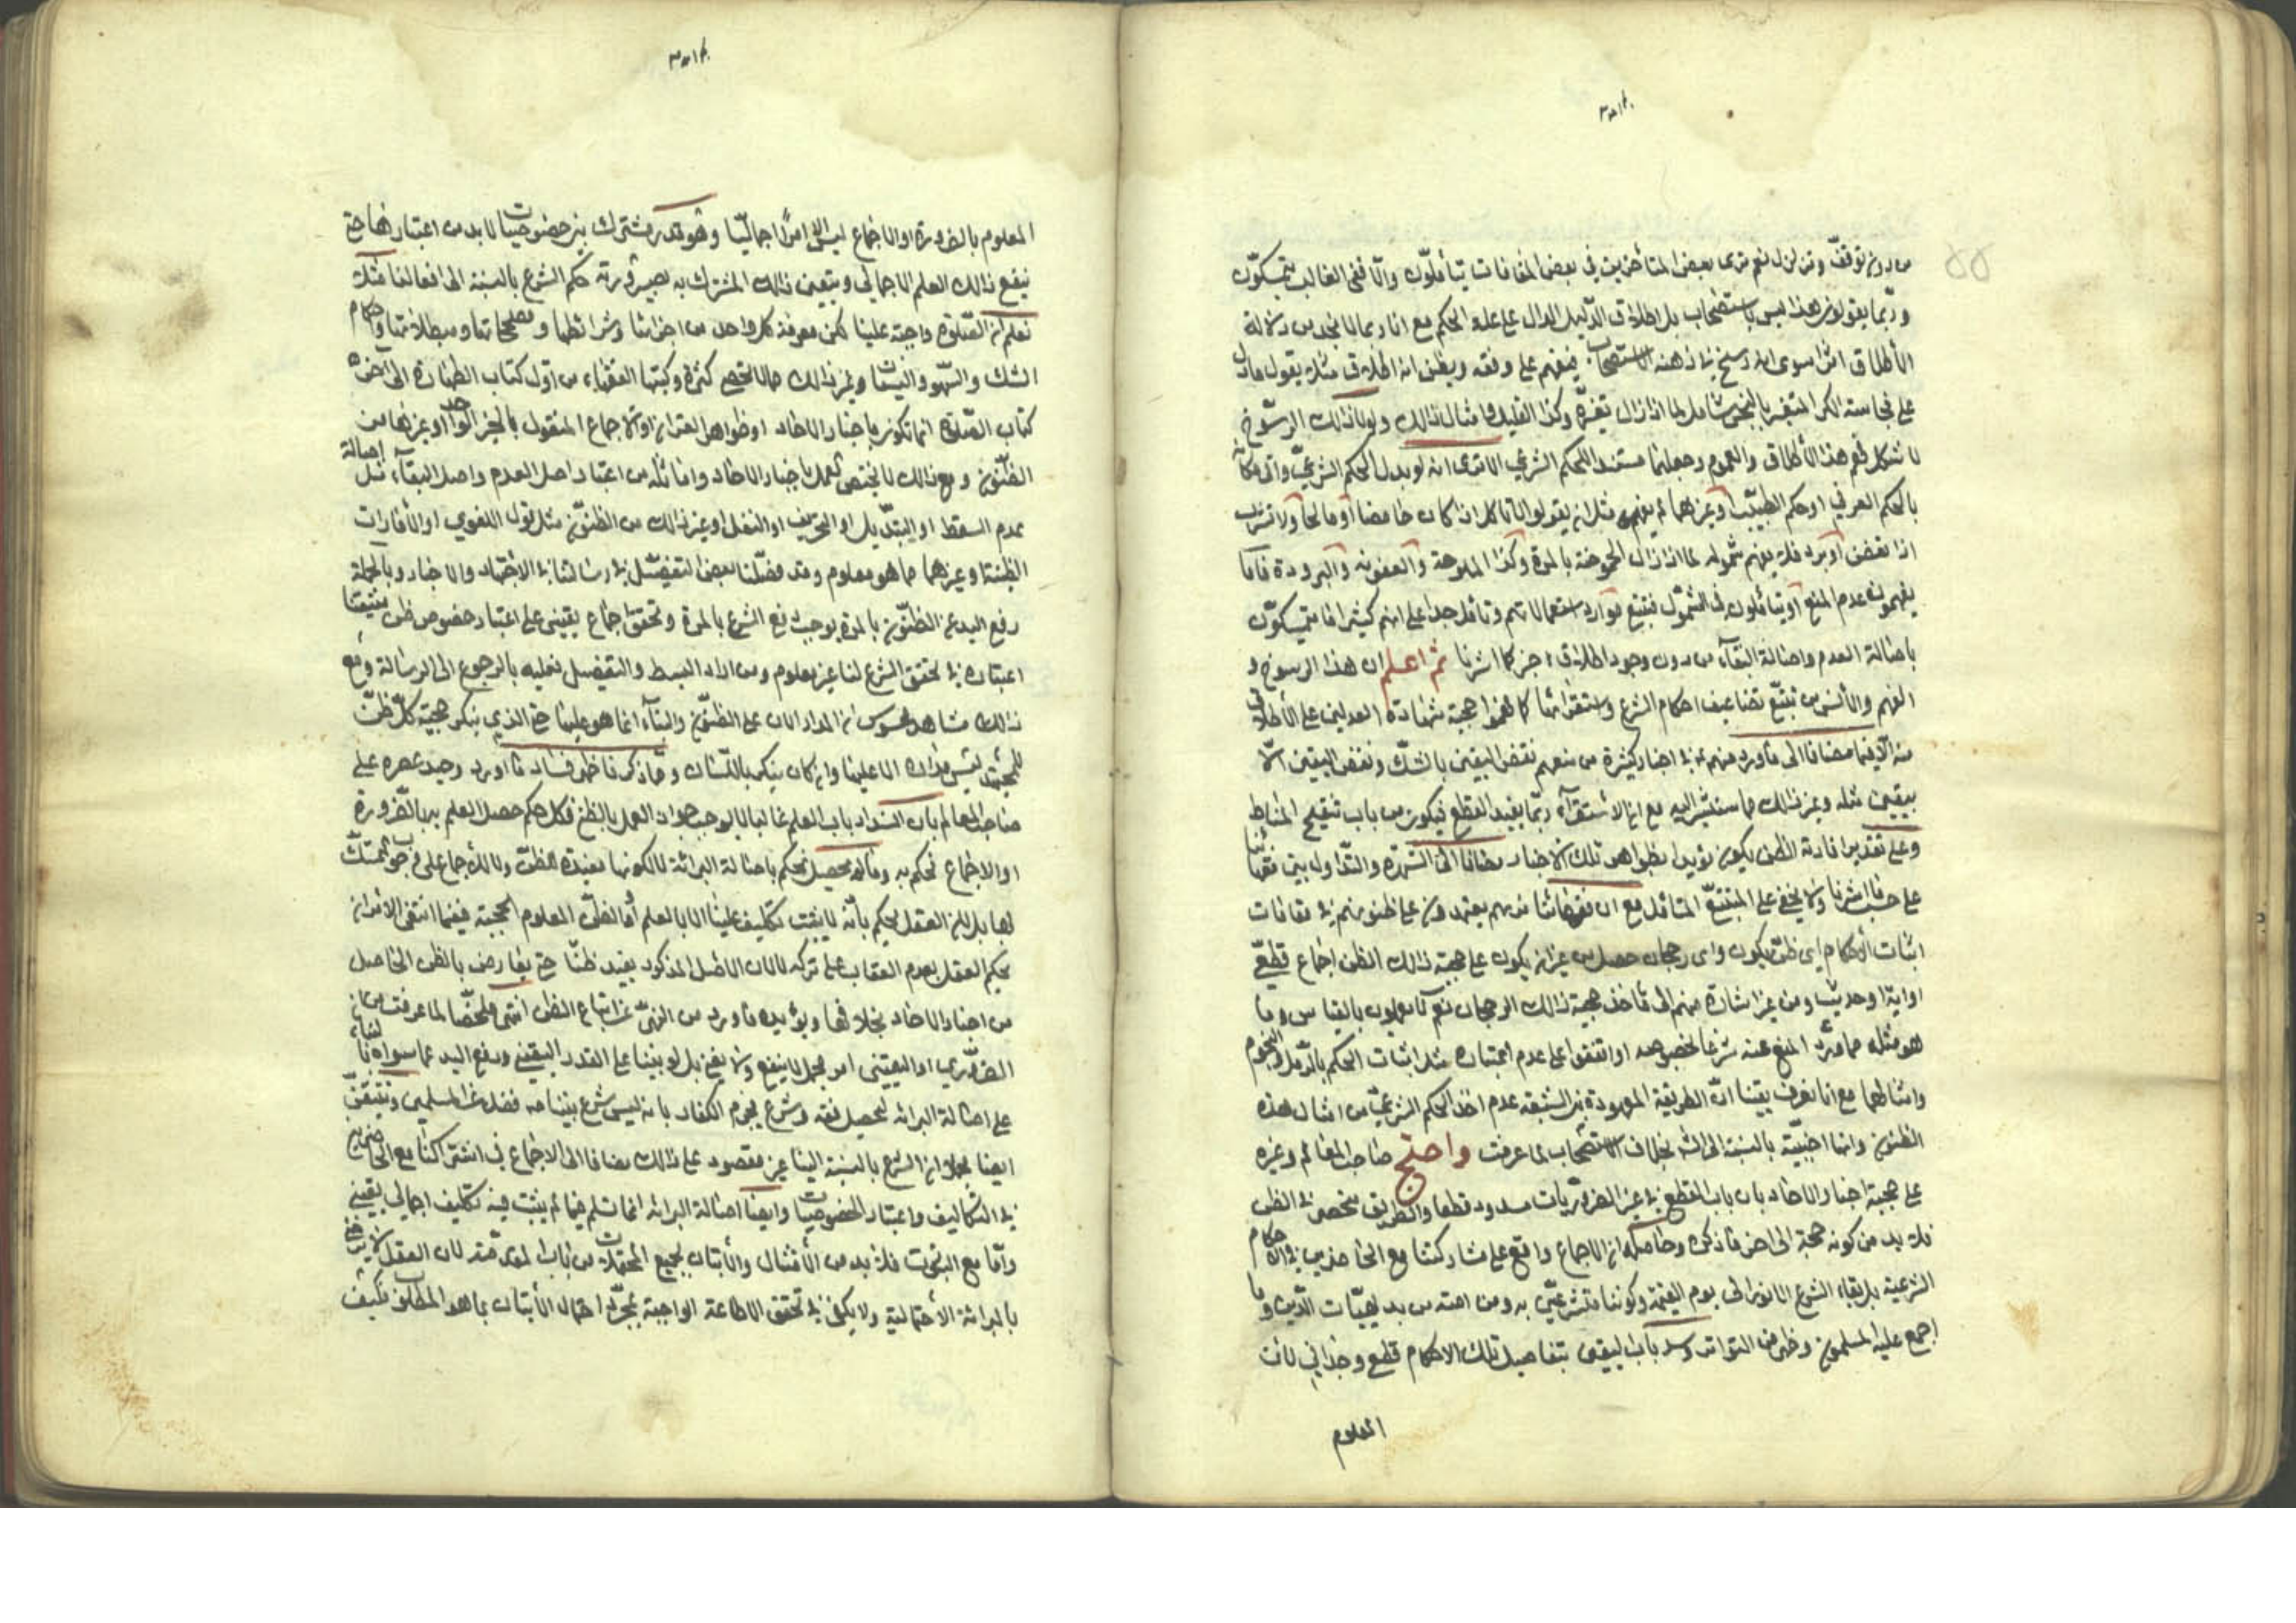 من دون توقف وتزلزل نعم نرى بعض المتأخرين في بعض المقامات يتأملون والا ففي الغالب يتمسكون
وربما يقولون هذا ليس باستصحاب بل اطلاق الدليل الدال على علة الحكم مع انا ربما لا نجد من دلالة
الاطلاق اثرا سوى انه رسخ في ذهنه الاستصحاب فيفهم على وفقه ويظن انه اطلاق مثلا يقول ما دل
على نجاسة الكر المتغير بالنجس شامل لما اذا زال تغيره وكذا القليل وامثال ذلك ولولا ذلك الرسوخ
لا شكل فهم هذا الاطلاق والعموم وجعلهما مستند الحكم الشرعي الا ترى انه لو بدل الحكم الشرعي واتى مكانه
بالحكم العرفي او حكم الطبيب او غيرهما لم يفهم مثل ان يقولوا لا تأكل اذا كان حامضا او مالحا ولا تشرب
اذا تعفن او برد فلا يفهم شموله لما اذا زال الحموضة بالمرة وكذا الملوحة والعفونة والبرودة فاما
يفهمون عدم المنع او يتأملون في الشمول فتتبع موارد استعمالاتهم وتأمل جدا على انهم كثيرا ما يتمسكون
باصالة العدم واصالة البقاء من دون وجود اطلاق جزما كما اشرنا ثم اعلم ان هذا الرسوخ و
الفهم والانس من تتبع تضاعيف احكام الشرع واستقرائها كما فهموا حجية شهادة العدلين على الاطلاق
منه الا فيما مضافا الى ما ورد منهم ع في اخبار كثيرة من منعهم نقض اليقين بالشك ونقض اليقين الا
بيقين مثله وغير ذلك مما سنشير اليه مع ان الاستقراء ربما يفيد القطع فيكون من باب تنقيح المناط
وعلى تقدير افادته الظن يكون مؤيدا بظواهر تلك الاخبار مضافا الى الشهرة والتداول بين فقهائنا
على حسب ما اشرنا ولا يخفى على المتتبع المتأمل مع ان فقهائنا نريهم يعتمدون على ظنونهم في مقامات
اثبات الاحكام اي ظن يكون واي رجحان حصل من غير ان يكون على حجية ذلك الظن اجماع قطعي
او اية او حديث ومن غير اشارة منهم الى مأخذ حجية ذلك الرجحان نعم لا يعملون بالقياس وما
هو مثله مما ورد المنع عنه شرعا بخصوصه او اتفقوا على عدم اعتباره مثل اثبات الحكم بالرمل والنجوم
وامثالهما مع انا نعرف يقينا ان الطريقة المعهودة من الشيعة عدم اخذ الحكم الشرعي من امثال هذه
الظنون وانها اجنبية بالنسبة الى الشرع بخلاف الاستصحاب لما عرفت واحتج صاحب المعالم وغيره
على حجية اخبار الاحاد بان باب القطع في غير الضروريات مسدود قطعا والطريق منحصر في الظن
فلا بد من كونه حجة الى اخر ما ذكره وحاصله ان الاجماع واقع على مشاركتنا مع الحاضرين في الاحكام
الشرعية بل بقاء الشرع الانور الى يوم القيمة وكوننا متشرعين به ومن امته من بديهيات الدين وما
اجمع عليه المسلمون وظهر من التواتر وسد باب اليقين بتفاصيل تلك الاحكام قطع وجداني لان
المعلوم
المعلوم بالضرورة او الاجماع ليس الا امرا اجماليا وهو قدر مشترك بين خصوصيات لا بد من اعتبارها حتى
ينفع ذلك العلم الاجمالي ويتعين ذلك المشترك به بصيرورته حكم الشرع بالنسبة الى افعالنا مثلا
نعلم ان الصلوة واجبة علينا لكن معرفة كل واحد من اجزائها وشرائطها ومصححاتها ومبطلاتها واحكام
الشك والسهو والنسيان وغير ذلك مما لا تحصى كثرة وكتبها الفقهاء من اول كتاب الطهارة الى آخر
كتاب الصلوة انما تكون باخبار الاحاد او ظواهر القران او الاجماع المنقول بالخبر الواحد او غيرها من
الظنون ومع ذلك لا يختص العمل باخبار الاحاد وامثاله من اعتبار اصل العدم واصل البقاء مثل اصالة
عدم السقط او التبديل او التحريف او النقل او غير ذلك من الظنون مثل قول اللغوي او الامارات
الظنية وغيرهما مما هو معلوم وقد فصلنا بعض التفصيل في رسالتنا في الاجتهاد والاخبار وبالجملة
رفع اليد عن الظنون بالمرة يوجب رفع الشرع بالمرة وتحقق اجماع يقيني على اعتبار خصوص ظن
اعتباره في تحقق الشرع لنا غير معلوم ومن اراد البسط والتفصيل فعليه بالرجوع الى الرسالة ومع
ذلك مشاهد محسوس ان المدار الان على الظنون والبناء انما هو عليها حتى الذي ينكر حجية كل ظن
للمجتهد ليس مداره الا عليها وان كان ينكر باللسان ومما ذكرنا ظهر فساد ما اورد وحيد عصره على
صاحب المعالم بان انسداد باب العلم غالبا لا يوجب جواز العمل بالظن فكل حكم حصل العلم به بالضرورة
او الاجماع نحكم به وما لم يحصل نحكم باصالة البرائة لا لكونها مفيدة للظن ولا للاجماع على وجوب التمسك
بها بل لان العقل يحكم بانه لا يثبت تكليف علينا الا بالعلم او الظن المعلوم الحجية ففيما انتفى الامران
يحكم العقل بعدم العقاب على تركه لا لان الاصل المذكور يفيد ظنا حتى يعارض بالظن الحاصل
من اخبار الاحاد بخلافها ويؤيده ما ورد من النهي عن اتباع الظن انتهى ملخصا لما عرفت من ان
الضروري او اليقيني امر مجمل لا ينفع ولا يغني بل لو بنينا على القدر اليقيني ورفع اليد عما سواه بناء
على اصالة البرائة لحصل فقه وشرع يجزم الكفار بانه ليس شرع نبينا ص فضلا عن المسلمين ونتيقن
ايضا بجلاء ان الشرع بالنسبة الينا غير مقصود على ذلك مضافا الى الاجماع في اشتراكنا مع الحاضرين
في التكاليف واعتبار الخصوصيات وايضا اصالة البرائة انما تسلم فيما لم يثبت فيه تكليف اجمالي يقيني
واما مع الثبوت فلا بد من الامتثال والاتيان بجميع المحتملات من باب المقدمة لان العقل لا يرضى
بالبرائة الاحتمالية ولا يكفي في تحقق الاطاعة الواجبة بمجرد احتمال الاتيان بما هو المطلوب فكيف